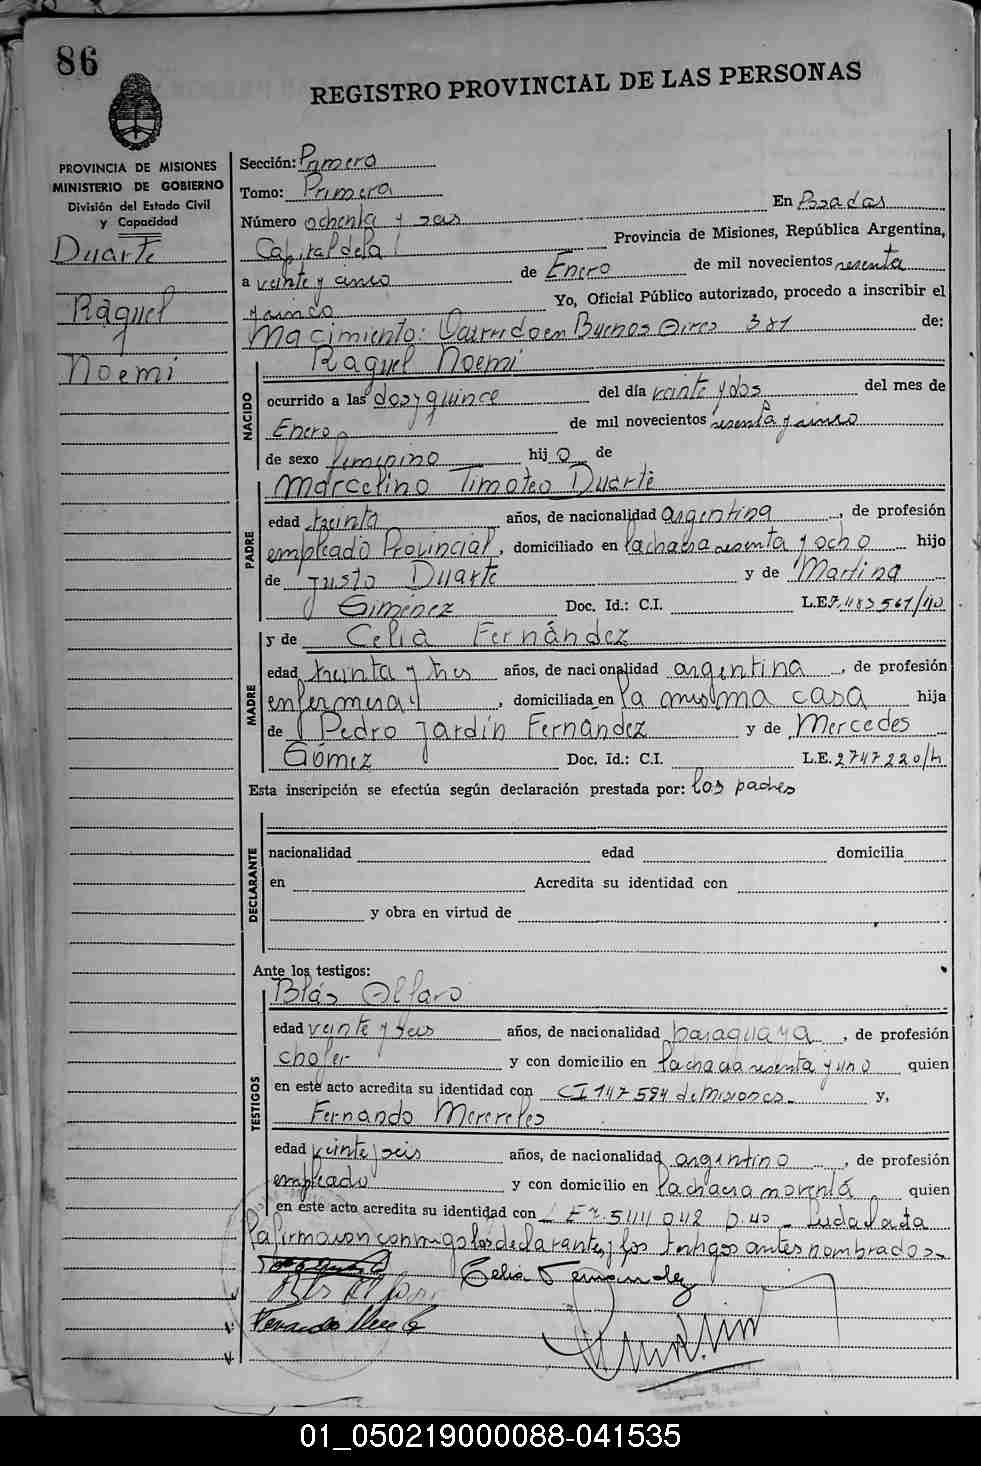 86
REGISTRO PROVINCIAL DE LAS PERSONAS
PROVINCIA DE MISIONES
MINISTERIO DE GOBIERNO
División del Estado Civil
y Capacidad
Duarte
Raquel
Noemi
Sección: Primera
Tomo: Primera
Número ochenta y seis En Posadas
Capital de la Provincia de Misiones, República Argentina,
a veinte y cinco de Enero de mil novecientos sesenta
y cinco Yo, Oficial Público autorizado, procedo a inscribir el
Nacimiento: Ocurrido en Buenos Aires 381 de:
Raquel Noemi
NACIDO
ocurrido a las dos y quince del día veinte y dos del mes de
Enero de mil novecientos sesenta y cinco
de sexo femenino hij a de
Marcelino Timoteo Duarte
PADRE
edad treinta años, de nacionalidad argentina, de profesión
empleado Provincial, domiciliado en la chacra sesenta y ocho hijo
de Justo Duarte y de Martina
Giménez Doc. Id.: C.I. L.E. 7.483.561/40
y de Celia Fernández
MADRE
edad treinta y tres años, de nacionalidad argentina, de profesión
enfermera, domiciliada en la misma casa hija
de Pedro Jardín Fernández y de Mercedes
Gómez Doc. Id.: C.I. L.E. 2747220/h
Esta inscripción se efectúa según declaración prestada por: los padres
DECLARANTE
nacionalidad edad domicilia
en Acredita su identidad con
y obra en virtud de
Ante los testigos:
Blás Alfaro
TESTIGOS
edad veinte y seis años, de nacionalidad paraguaya, de profesión
chofer y con domicilio en la chacra sesenta y uno quien
en este acto acredita su identidad con CI 147594 de Misiones y,
Fernando Mereles
edad veinte y seis años, de nacionalidad argentino, de profesión
empleado y con domicilio en la chacra noventa quien
en este acto acredita su identidad con Leída el acta
la firmaron conmigo los declarantes y los testigos antes nombrados
Celia Fernandez
01_050219000088-041535